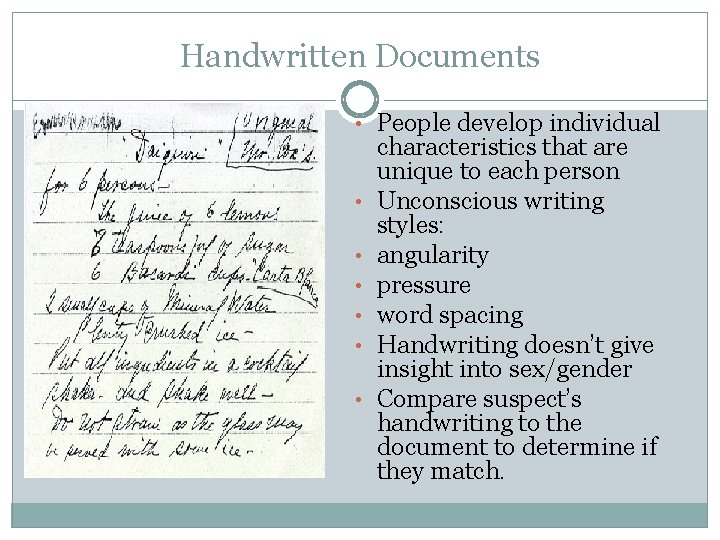 Handwritten Documents
"Daiquiri" Original
Mr. Cox's
for 6 persons—
The juice of 6 lemons
6 teaspoons full of sugar
6 Bacardi cups "Carta Blanca"
2 small cups of Mineral Water
Plenty crushed ice—
Put all ingredients in a cocktail
shaker and shake well—
Do not strain as the glass may
be served with some ice—
• People develop individual
characteristics that are
unique to each person
• Unconscious writing
styles:
• angularity
• pressure
• word spacing
• Handwriting doesn't give
insight into sex/gender
• Compare suspect's
handwriting to the
document to determine if
they match.